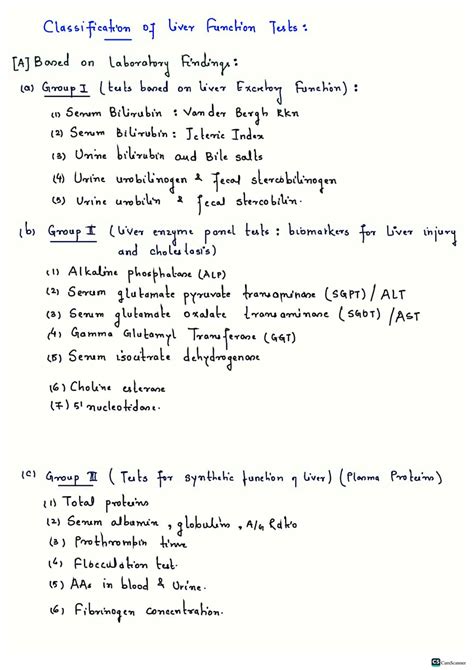 Classification of Liver Function Tests :
[A] Based on Laboratory Findings :
(a) Group I (tests based on Liver Excretory Function) :
(1) Serum Bilirubin : Van der Bergh Rxn
(2) Serum Bilirubin : Icteric Index
(3) Urine bilirubin and Bile salts
(4) Urine urobilinogen & fecal stercobilinogen
(5) Urine urobilin & fecal stercobilin.
(b) Group II (Liver enzyme panel tests : biomarkers for Liver injury
and cholestosis)
(1) Alkaline phosphatase (ALP)
(2) Serum glutamate pyruvate transaminase (SGPT) / ALT
(3) Serum glutamate oxalate transaminase (SGOT) / AST
(4) Gamma Glutamyl Transferase (GGT)
(5) Serum isocitrate dehydrogenase
(6) Choline esterase
(7) 5' nucleotidase.
(c) Group III (Tests for synthetic function of Liver) (Plasma Proteins)
(1) Total proteins
(2) Serum albumin, globulins, A/G Ratio
(3) Prothrombin time
(4) Flocculation test.
(5) AAs in blood & Urine.
(6) Fibrinogen concentration.
CS CamScanner